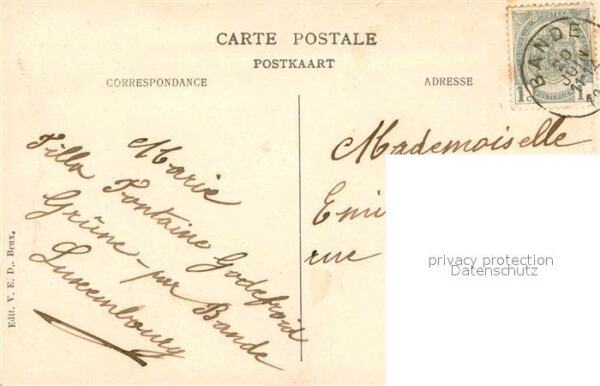 CARTE POSTALE
POSTKAART
CORRESPONDANCE
ADRESSE
BANDE
1c 1c
Marie
Villa Fontaine Godefroid
Grüne-par Bande
Luxembourg
Mademoiselle
Emi
rue
privacy protection
Datenschutz
Edit. V. E. D., Brux.